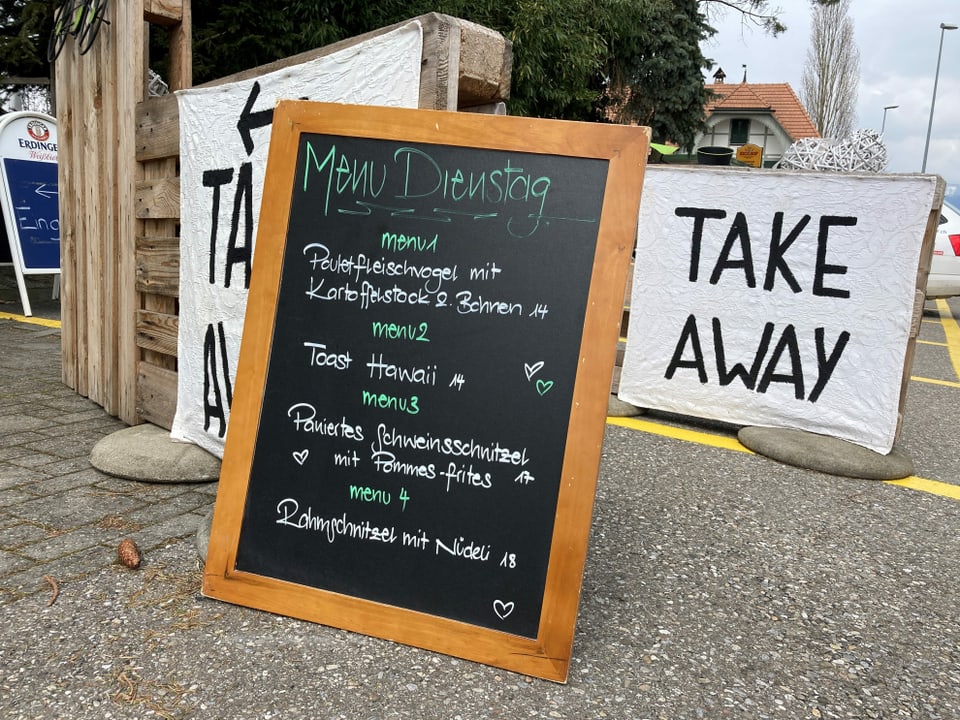 ERDINGER
Weißbier
←
Eing
←
TA
AW
Menu Dienstag
menu 1
Pouletfleischvogel mit
Kartoffelstock & Bohnen 14
menu 2
Toast Hawaii 14
menu 3
Paniertes Schweinsschnitzel
mit Pommes-frites 17
menu 4
Rahmschnitzel mit Nüdeli 18
TAKE
AWAY